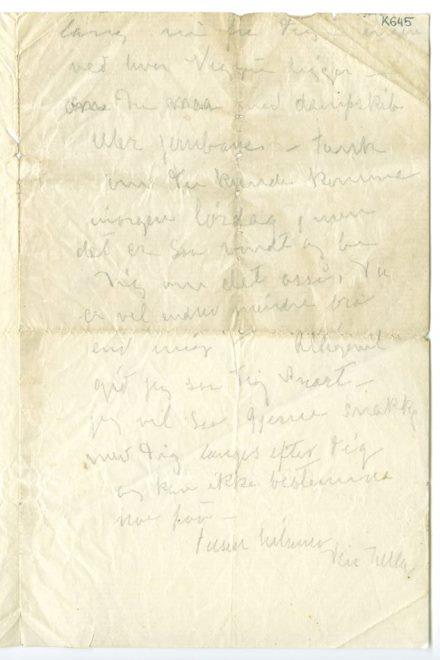 K645
lang, nå be Dig –
ved hvor Veggli ligger –
om Du maa med dampskib
eller jernbane. – Tænk
om Du kunde komme
imorgen lørdag, men
det er saa vondt og be
Dig om det også, Du
er vel endnu mindre bra
end mig Alligevel
gid jeg saa Dig snart –
jeg vil saa gjerne snakke
med Dig længes efter Dig
og kan ikke bestemme
noe paa –
Tusen hilsener
Din Tulla